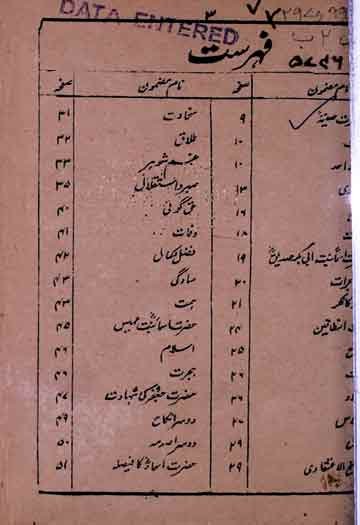 DATA ENTERED
فہرست
نام مضمون صفحہ نام مضمون صفحہ
۹ سخاوت ۳۱
۱۰ طلاق ۳۲
۱۰ شوہر ۳۳
۱۳ صبر و استقلال ۳۵
۱۶ حق گوئی ۴۰
۱۸ وفات ۴۱
ابی بکر صدیقؓ ۱۹ فضل و کمال ۴۲
۲۰ سادگی ۴۳
۲۱ ہمت ۴۳
۲۴ حضرت اسماؓ بنت عمیس ۴۵
۲۵ اسلام ۴۶
۲۶ ہجرت ۴۶
۲۶ حضرت جعفرؓ کی شہادت ۴۷
۲۷ دوسرا نکاح ۴۹
۲۹ دوسرا صدمہ ۵۰
الاعتقادی ۲۹ حضرت اسماؓ کا فیصلہ ۵۱